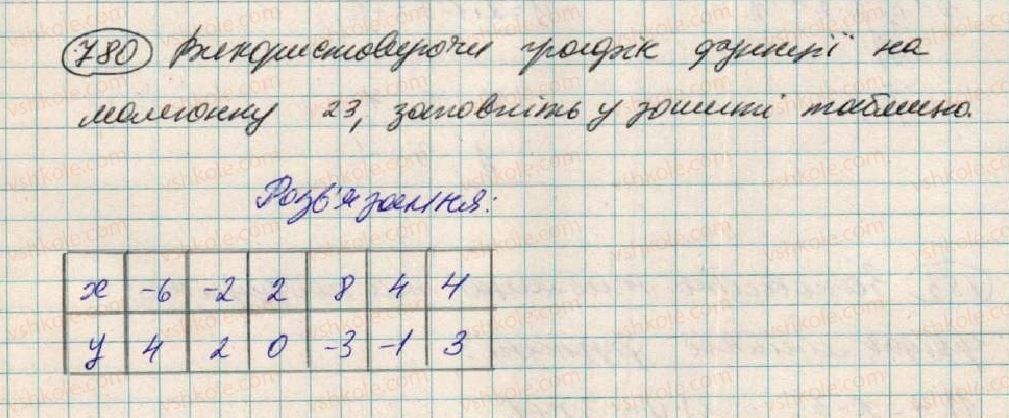 780 Використовуючи графік функції на
малюнку 23, заповніть у зошиті таблицю.
Розв'язання:
х -6 -2 2 8 4 4
у 4 2 0 -3 -1 3